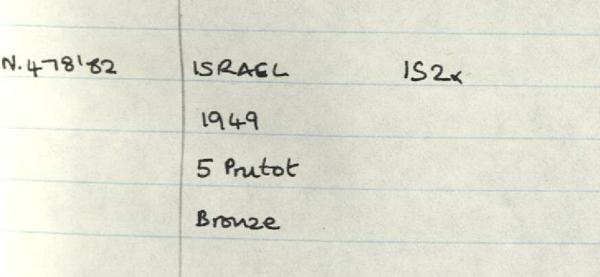 N.478'82 ISRAEL IS2x
1949
5 Prutot
Bronze